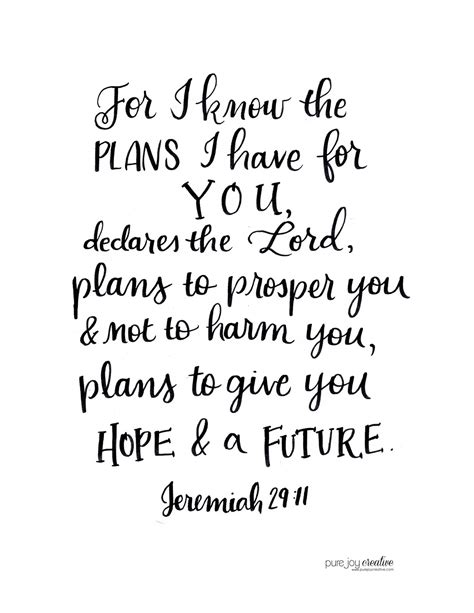 For I know the
PLANS I have for
YOU,
declares the Lord,
plans to prosper you
& not to harm you,
plans to give you
HOPE & a FUTURE.
Jeremiah 29:11
pure joy creative
www.purejoycreative.com